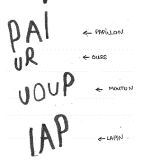 PAI ← PAPILLON
UR ← OURS
UOUP ← MOUTON
LAP ← LAPIN